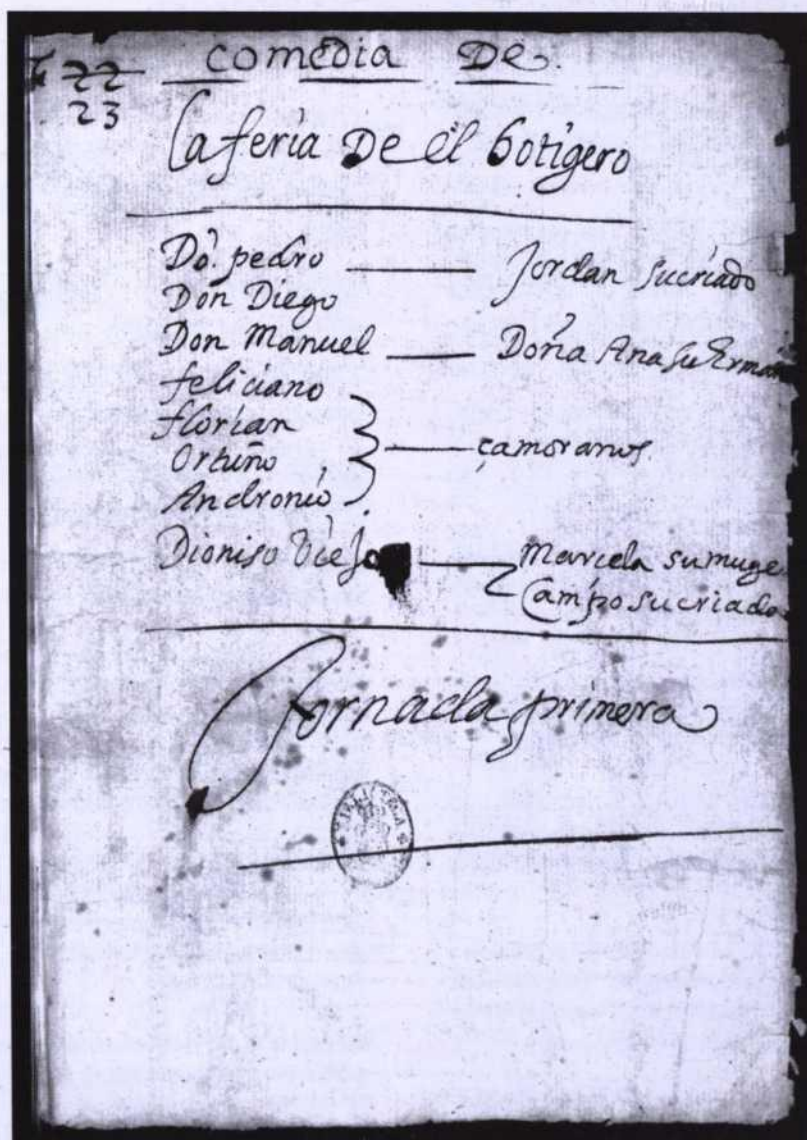 22 comedia De.
23
La feria De el botigero
Dō. pedro — Jordan su criado
Don Diego
Don Manuel — Doña Ana su Erma
feliciano
florian
Ortuño — çamoranos
Andronio
Dioniso Viejo — Marcela su muge
Campo su criado
Jornada primera